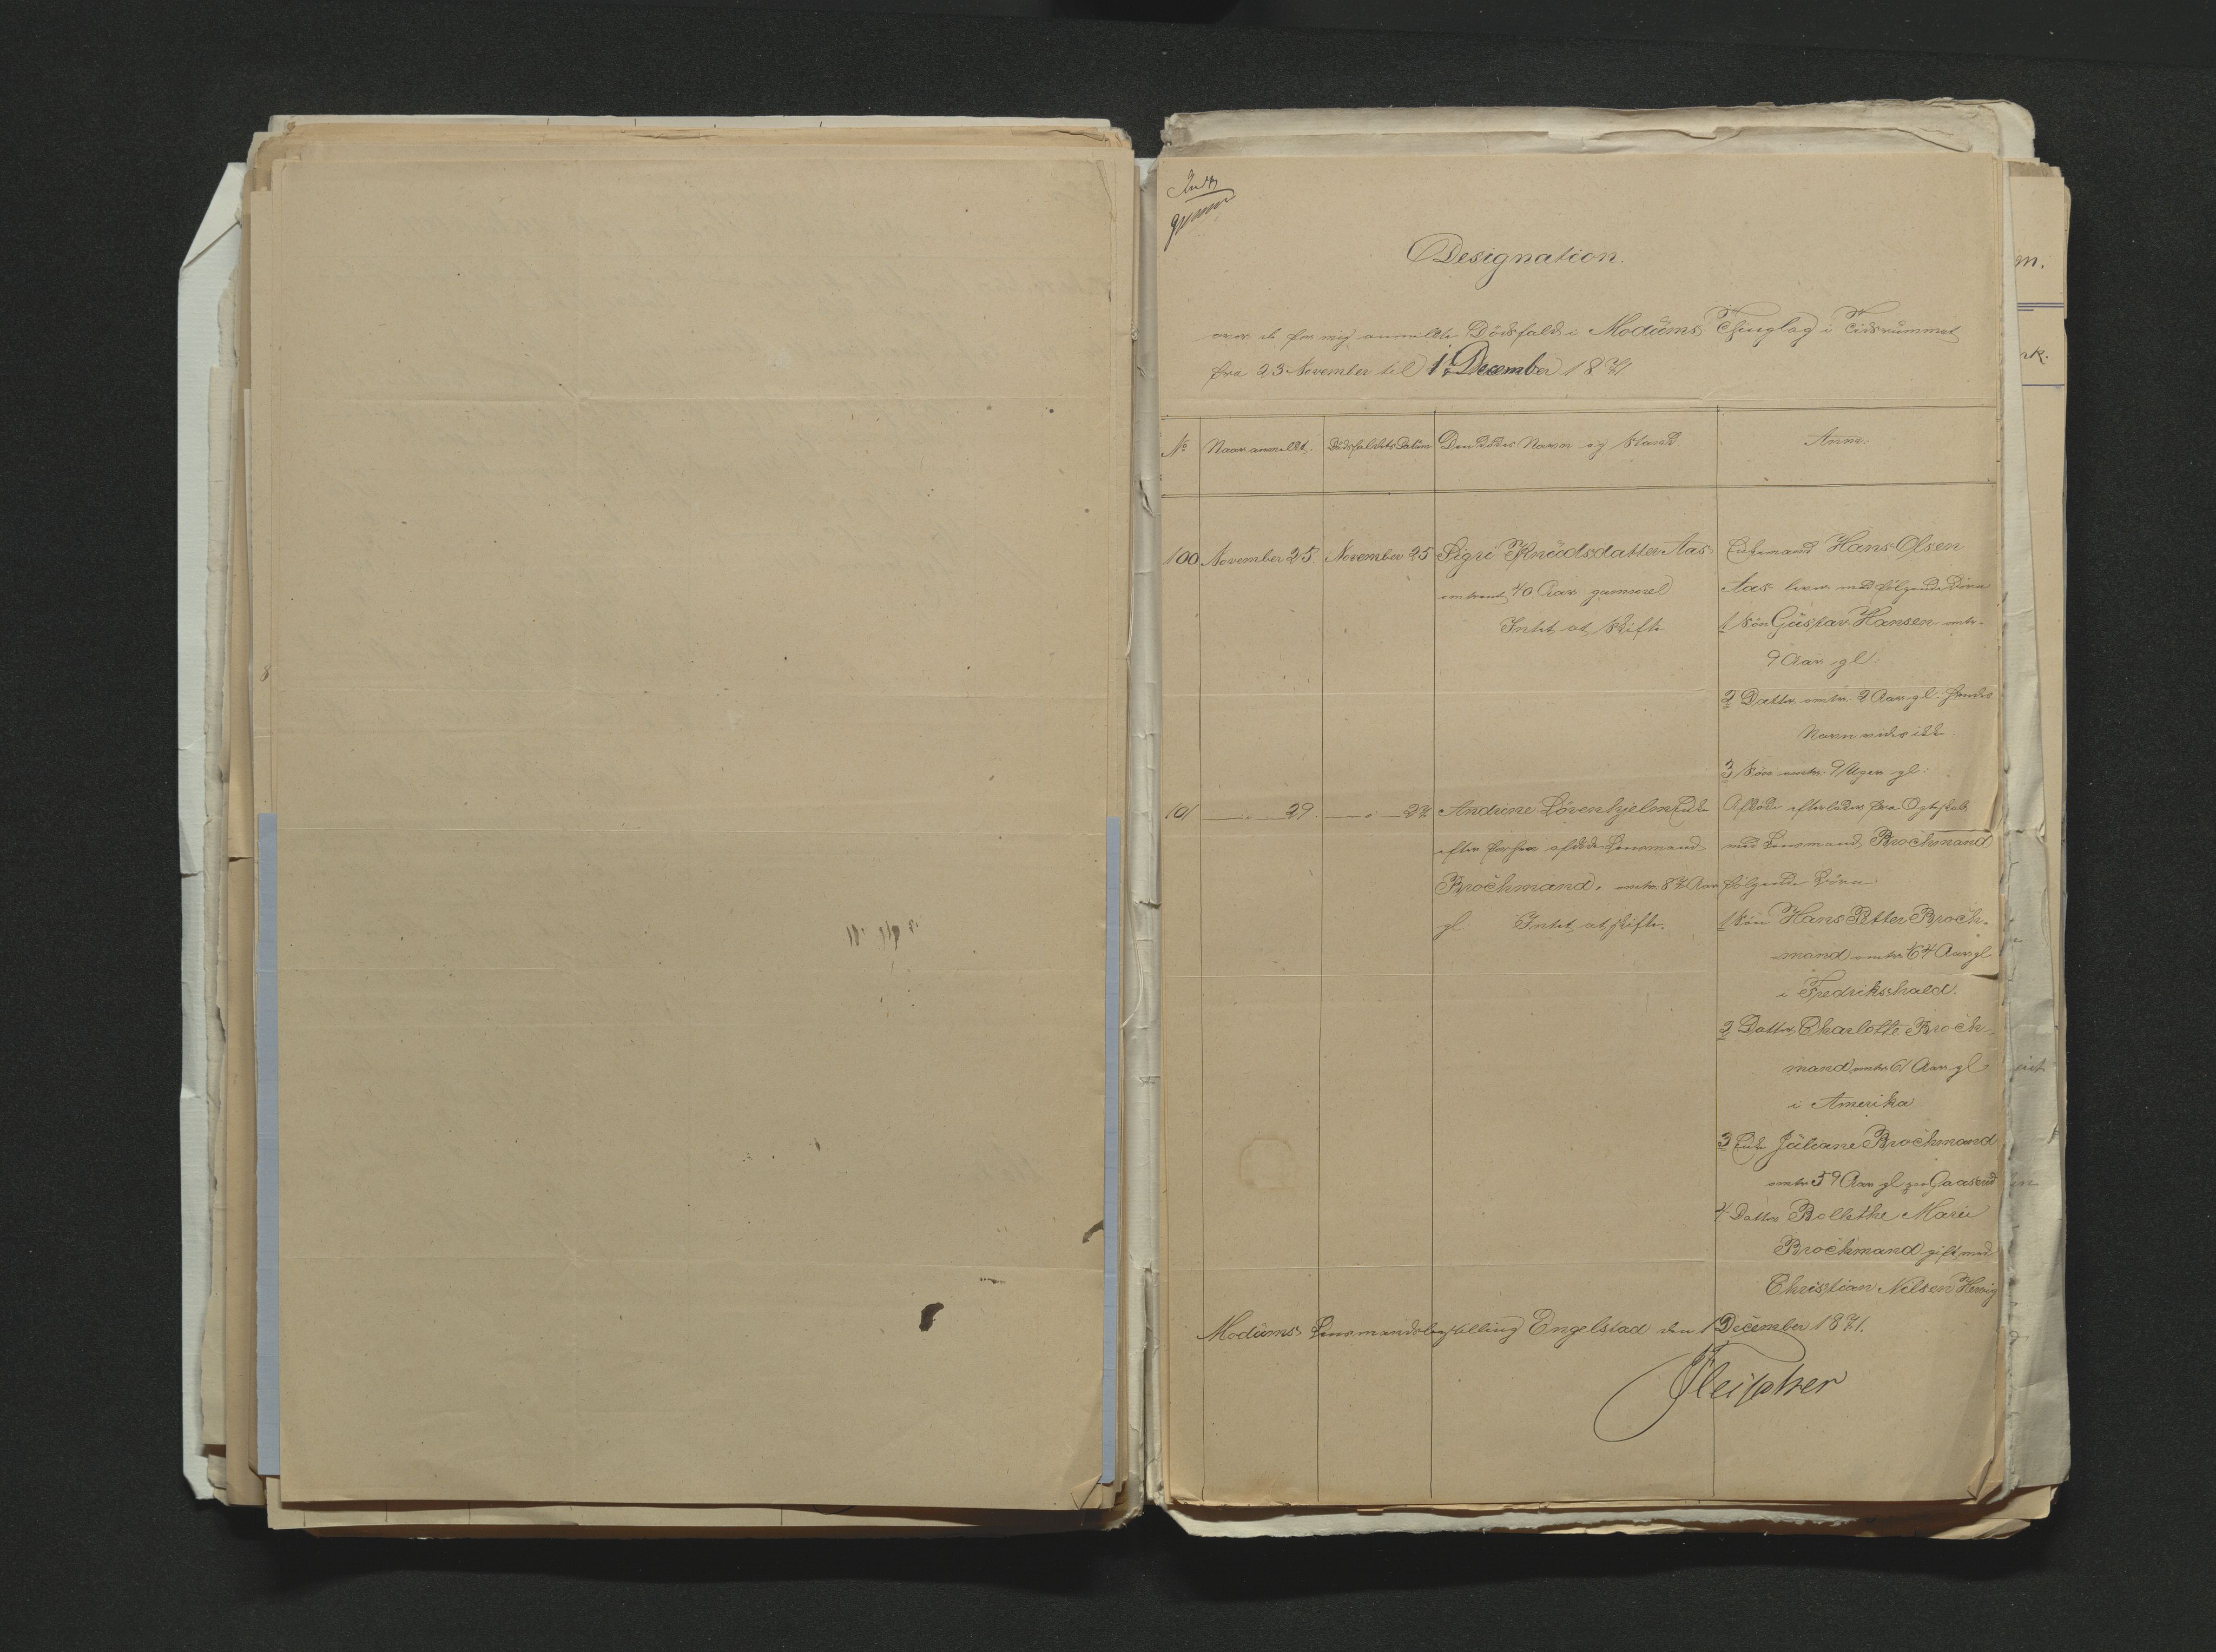 Designation.
over de for mig anmeldte Dödsfald i Modums Thinglag i Tidsrummet
fra 23 November til 1 December 1871
No
Naar anmeldt.
Dödsfaldets Datum
Den Dödes Navn og Stand
Anm:
100
November 25.
November 25
Sigri Knudsdatter Aas
omtrent 40 Aar gammel
Intet at skifte
Enkemand Hans Olsen
Aas lever med følgende Börn
1 Sön Gustav Hansen omtr.
9 Aar gl.
2 Datter omtr. 2 Aar gl. hendes
Navn vides ikke
3 Sön omtr. 9 Uger gl:
101
— " — 29.
— " — 27
Andrine Lövenhjelm Enke
efter forhen afdöde Lensmand
Brochmand, omtr. 87 Aar
gl. Intet at skifte.
Afdöde efterlader fra Egteskab
med Lensmand Brochmand
følgende Börn:
1 Sön Hans Petter Broch-
mand omtr. 64 Aar gl
i Fredrikshald.
2 Datter Charlotte Broch-
mand omtr 61 Aar gl
i Amerika
3 Enke Juliane Brochmand
omtr 59 Aar gl paa Gaasrud
4 Datter Bollethe Marie
Brochmand gift med
Christian Nilsen Hervig
Modums Lensmandsbestilling Engelstad den 1 December 1871.
Fleischer